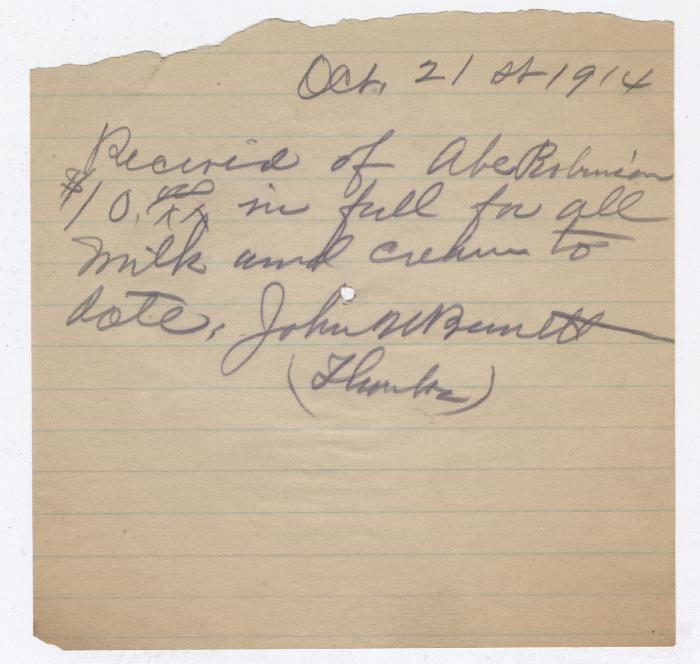 Oct. 21st 1914
Received of Abe Robinson
$10.00/xx in full for all
milk and cream to
date. John W Bennett
(Thanks)